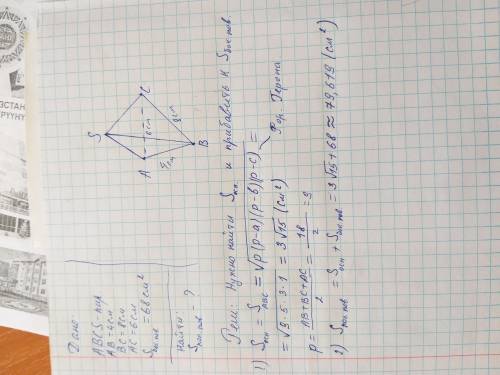 Дано:
ABCS-пир
AB=4см
BC=8см
AC=6см
Sбок пов=68см²
Найти:
Sпол пов-?
S
A
B
C
6см
8см
4см
Реш: Нужно найти Sосн и прибавить к Sбок пов.
1) Sосн = SABC = √p(p-a)(p-b)(p-c) =
Фор. Герона
= √9·5·3·1 = 3√15 (см²)
p = AB+BC+AC / 2 = 18 / 2 = 9
2) Sпол пов = Sосн + Sбок пов = 3√15+68 ≈ 79,619 (см²)